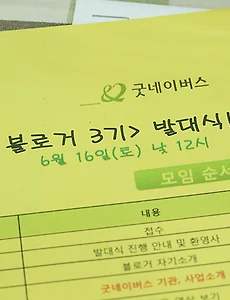 굿네이버스
블로거 3기> 발대식
6월 16일(토) 낮 12시
모임 순서
내용
접수
발대식 진행 안내 및 환영사
블로거 자기소개
굿네이버스 기관, 사업소개